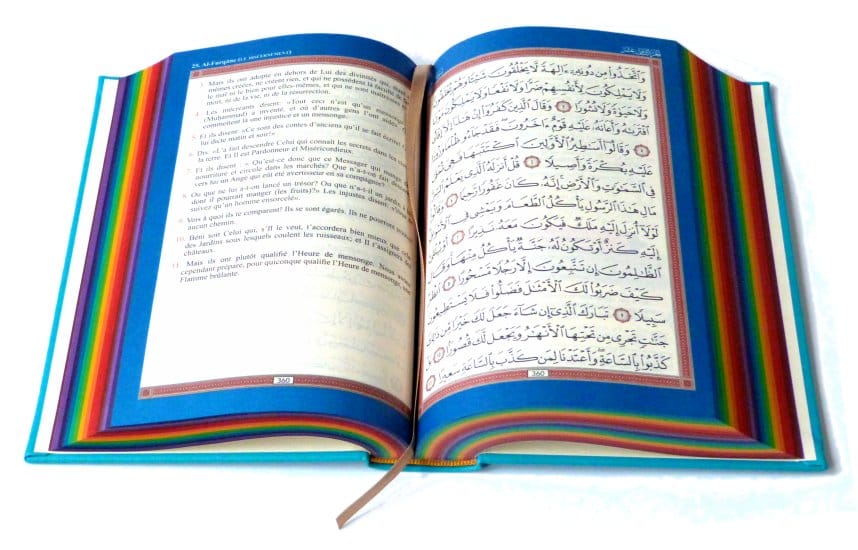 25. Al-Furqâne (LE DISCERNEMENT)
3. Mais ils ont adopté en dehors de Lui des divinités qui,
mêmes créées, ne créent rien, et qui ne possèdent la faculté de
le mal ni le bien pour elles-mêmes, et qui ne sont maîtresses
mort, ni de la vie, ni de la résurrection.
4. Les mécréants disent: «Tout ceci n'est qu'un mensonge
(Muhammad) a inventé, et où d'autres gens l'ont aidé».
commettent là une injustice et un mensonge.
5. Et ils disent: «Ce sont des contes d'anciens qu'il se fait écrire!
lui dicte matin et soir!»
6. Dis: «L'a fait descendre Celui qui connaît les secrets dans les
la terre. Et Il est Pardonneur et Miséricordieux.
7. Et ils disent: « Qu'est-ce donc que ce Messager qui mange
nourriture et circule dans les marchés? Que n'a-t-on fait descendre
vers lui un Ange qui eût été avertisseur en sa compagnie?
8. Ou que ne lui a-t-on lancé un trésor? Ou que n'a-t-il un jardin
dont il pourrait manger (les fruits)?» Les injustes disent: «Vous ne
suivez qu'un homme ensorcelé».
9. Vois à quoi ils te comparent! Ils se sont égarés. Ils ne pourront
aucun chemin.
10. Béni soit Celui qui, s'Il le veut, t'accordera bien mieux que
des Jardins sous lesquels coulent les ruisseaux; et Il t'assignera des
châteaux.
11. Mais ils ont plutôt qualifié l'Heure de mensonge. Nous avons
cependant préparé, pour quiconque qualifie l'Heure de mensonge, une
Flamme brûlante.
360
وَٱتَّخَذُوا۟ مِن دُونِهِۦٓ ءَالِهَةً لَّا يَخْلُقُونَ شَيْـًٔا وَهُمْ
وَلَا يَمْلِكُونَ لِأَنفُسِهِمْ ضَرًّا وَلَا نَفْعًا وَلَا يَمْلِكُونَ
وَلَا حَيَوٰةً وَلَا نُشُورًا ٣ وَقَالَ ٱلَّذِينَ كَفَرُوٓا۟ إِنْ هَٰذَآ إِلَّآ إِفْكٌ
ٱفْتَرَىٰهُ وَأَعَانَهُۥ عَلَيْهِ قَوْمٌ ءَاخَرُونَ فَقَدْ جَآءُو ظُلْمًا وَزُورًا
٤ وَقَالُوٓا۟ أَسَٰطِيرُ ٱلْأَوَّلِينَ ٱكْتَتَبَهَا فَهِىَ تُمْلَىٰ
عَلَيْهِ بُكْرَةً وَأَصِيلًا ٥ قُلْ أَنزَلَهُ ٱلَّذِى يَعْلَمُ
فِى ٱلسَّمَٰوَٰتِ وَٱلْأَرْضِ إِنَّهُۥ كَانَ غَفُورًا رَّحِيمًا ٦
مَالِ هَٰذَا ٱلرَّسُولِ يَأْكُلُ ٱلطَّعَامَ وَيَمْشِى فِى ٱلْأَسْوَاقِ
لَوْلَآ أُنزِلَ إِلَيْهِ مَلَكٌ فَيَكُونَ مَعَهُۥ نَذِيرًا ٧
إِلَيْهِ كَنزٌ أَوْ تَكُونُ لَهُۥ جَنَّةٌ يَأْكُلُ مِنْهَا وَقَالَ
ٱلظَّٰلِمُونَ إِن تَتَّبِعُونَ إِلَّا رَجُلًا مَّسْحُورًا ٨ ٱنظُرْ
كَيْفَ ضَرَبُوا۟ لَكَ ٱلْأَمْثَٰلَ فَضَلُّوا۟ فَلَا يَسْتَطِيعُونَ
سَبِيلًا ٩ تَبَارَكَ ٱلَّذِىٓ إِن شَآءَ جَعَلَ لَكَ خَيْرًا مِّن ذَٰلِكَ
جَنَّٰتٍ تَجْرِى مِن تَحْتِهَا ٱلْأَنْهَٰرُ وَيَجْعَل لَّكَ قُصُورًا ١٠ بَلْ
كَذَّبُوا۟ بِٱلسَّاعَةِ وَأَعْتَدْنَا لِمَن كَذَّبَ بِٱلسَّاعَةِ سَعِيرًا ١١
360